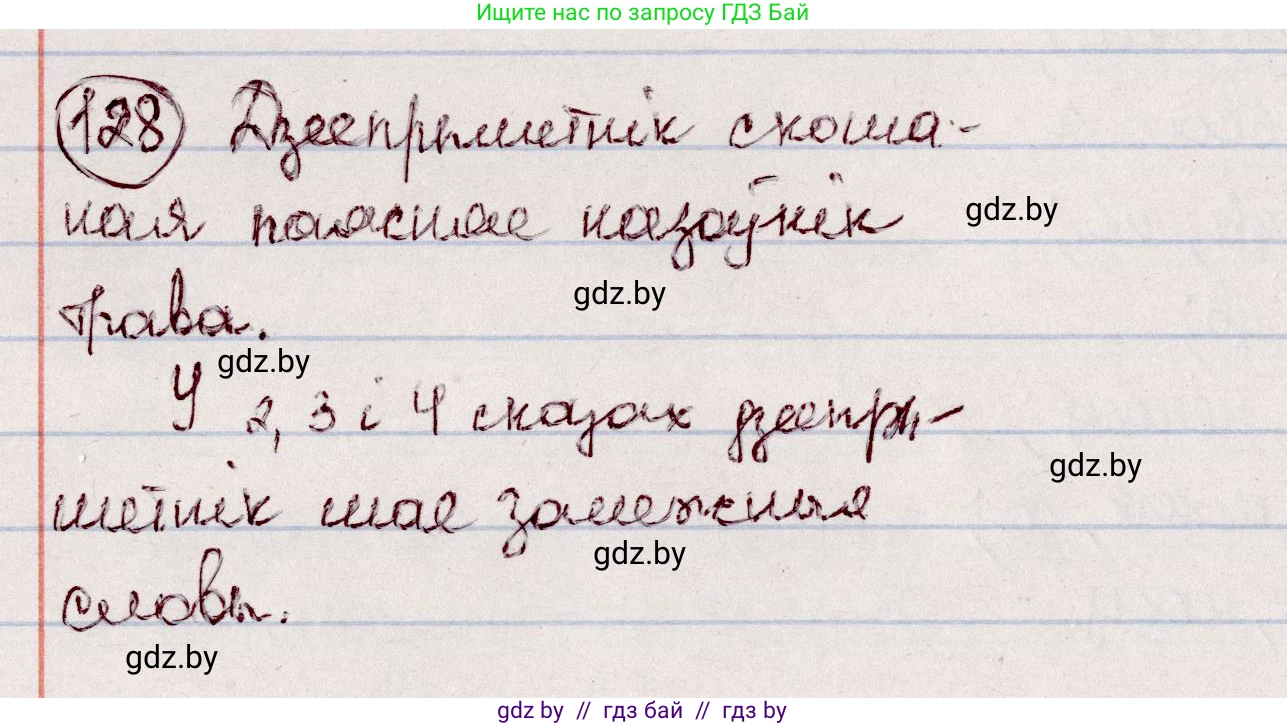 Ищите нас по запросу ГДЗ Бай
128 Дзеепрыметнік скоша-
ная паясняе назоўнік gdz.by
gdz.by
трава.
gdz.by
У 2, 3 і 4 сказах дзеепры-
gdz.by
метнік мае залежныя
gdz.by
словы.
gdz.by
gdz by // гдз бай // гдз by